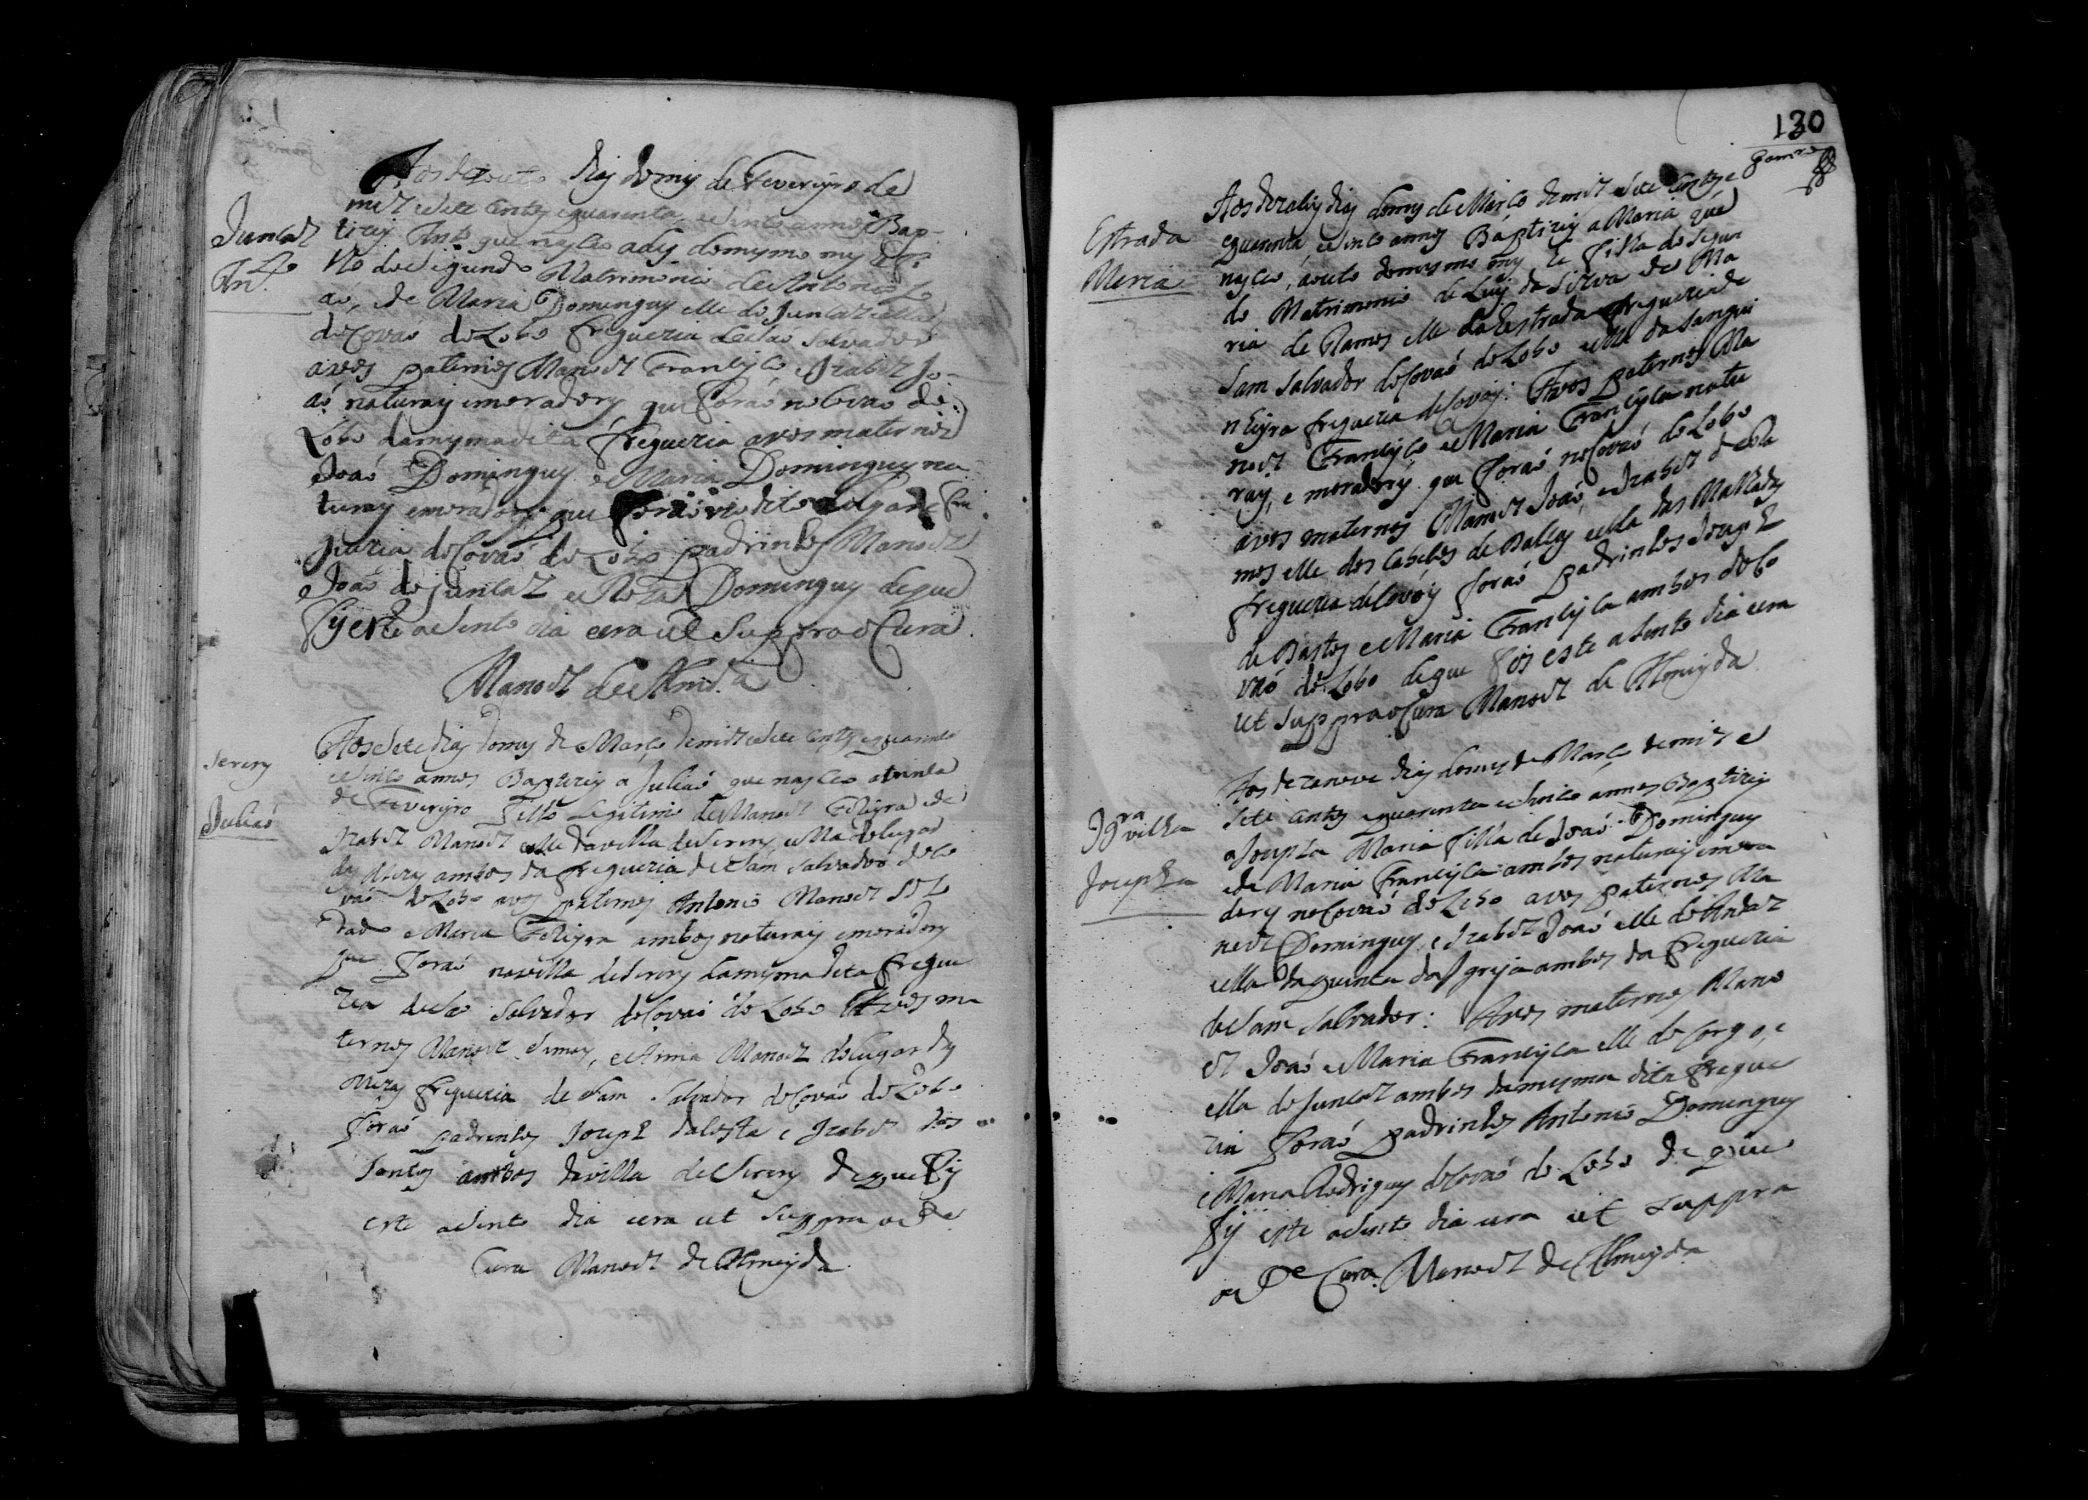 Juncal
Anto
Aos dezouto dias do mes de Fevereyro de
mil e sete centos e quarenta e sinco annos Bap-
tizey Anto que nasceo a des do mesmo mes Fi-
lho do segundo Matrimonio de Antonio Jo
aó, e de Maria Domingues elle do Juncal e ella
do Covaó do Lobo freguezia de Saó Salvador
avos paternos Manoel Francisco e Izabel Jo-
aó naturais e moradores que foraó no Covaó do
Lobo da mesma dita freguezia avos maternos
Joaó Domingues e Maria Domingues na
turais e moradores que foraó no dito lugar e fre
guezia do Covaó do Lobo padrinhos Manoel
Joaó do Juncal e Roza Domingues de que
fis este asento dia e era ut suppra o Cura
Manoel de Almda
Serem
Juliaó
Aos sete dias do mes de Março de mil e sete centos e quarenta
e sinco annos Baptizey a Juliaó que nasceo a trinta
de Fevereyro Filho legitimo de Manoel Ferreyra e de
Izabel Manoel elle da villa de Serem e ella do lugar
das Mezas ambos da freguezia de Sam Salvador do Co
vaó do Lobo avos paternos Antonio Manoel Sol
dado e Maria Ferreyra ambos naturais e moradores
que foraó na villa de Serem da mesma dita fregue
zia de Saó Salvador do Covaó do Lobo Avos ma
ternos Manoel Simoes, e Anna Manoel do lugar das
Mezas freguezia de Sam Salvador do Covaó do Lobo
foraó padrinhos Joseph da Costa e Izabel dos
Santos ambos da villa de Serem de que fis
este asento dia e era ut suppra o Pe
Cura Manoel de Almeyda
130
Estrada
Maria
Aos dias do mes de Março de mil e sete centos e
quarenta e sinco annos Baptizey a Maria que
nasceo a outo do mesmo mes he filha do segun
do Matrimonio de Luis da Silva e de Ma
ria de Ramos elle da Estrada freguezia de
Sam Salvador do Covaó do Lobo e ella da Sangui
nheyra freguezia de Covoes: Avos paternos Ma
noel Francisco e Maria Francisca natu
rais, e moradores que foraó no Covaó do Lobo
avos maternos Manoel Joaó e Izabel de Ra
mos elle dos Cascões de Balsas e ella das Malhadas
freguezia de Covoes foraó padrinhos Joseph
de Bastos e Maria Francisca ambos do Co
vaó do Lobo de que fis este asento dia e era
ut suppra o Cura Manoel de Almeyda
Josepha
Aos dezanove dias do mes de Março de mil e
sete centos e quarenta e sinco annos Baptizey
a Josepha Maria filha de Joaó Domingues
e de Maria Francisca ambos naturais e mora
dores no Covaó do Lobo avos paternos Ma
noel Domingues, e Izabel Joaó elle do Andal
ella da quinta da Igreja ambos da freguezia
de Sam Salvador: Avos maternos Mano
el Joaó e Maria Francisca elle do Corgo, e
ella do Juncal ambos da mesma dita fregue
zia foraó padrinhos Antonio Domingues
e Maria Rodrigues do Covaó do Lobo de que
fis este asento dia e era ut suppra
o Pe Cura Manoel de Almeyda